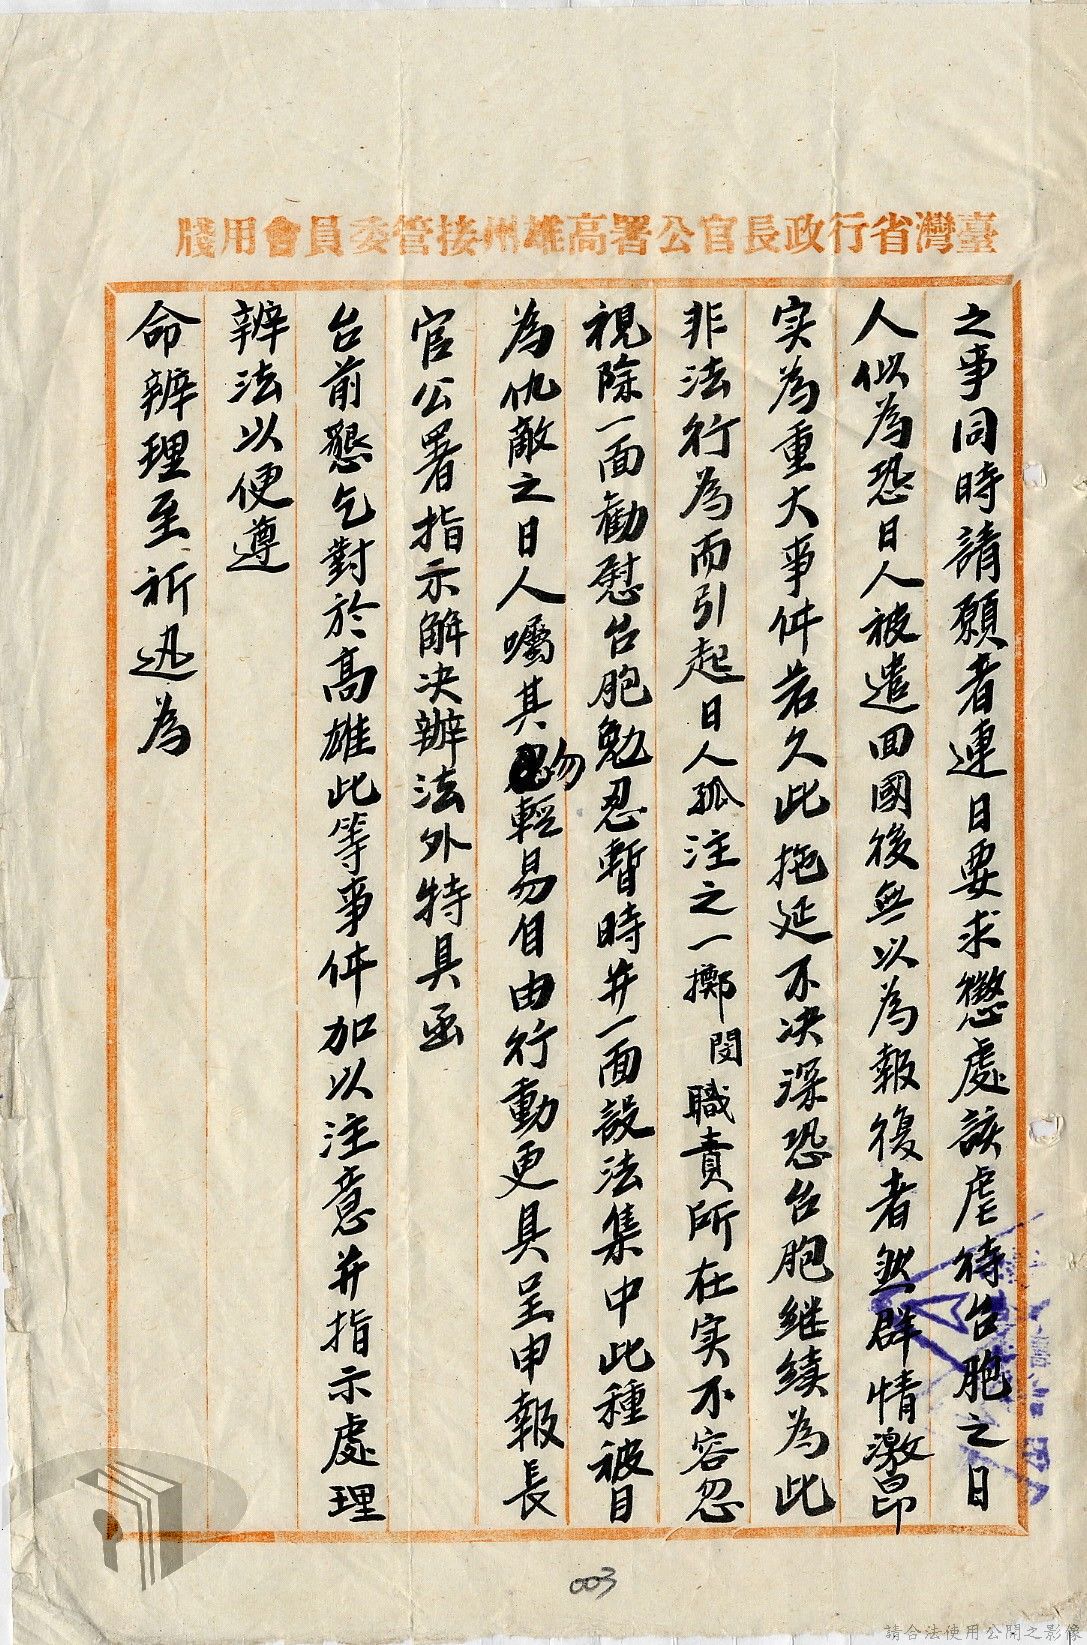 臺灣省行政長官公署高雄州接管委員會用牋
之事同時請願者連日要求懲處該虐待台胞之日
人似為恐日人被遣回國後無以為報復者然群情激昂
实為重大事件若久此拖延不决深恐台胞继续為此
非法行為而引起日人孤注之一擲閔職責所在实不容忽
視除一面勸慰台胞勉忍暫時并一面設法集中此種被目
為仇敵之日人囑其勿輕易自由行動更具呈申報長
官公署指示解决辦法外特具函
台前懇乞對於高雄此等事件加以注意并指示處理
辦法以便遵
命辦理至祈迅為
003
請合法使用公開之影像